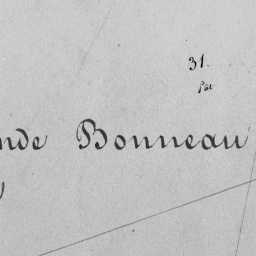 31.
nde Bonneau